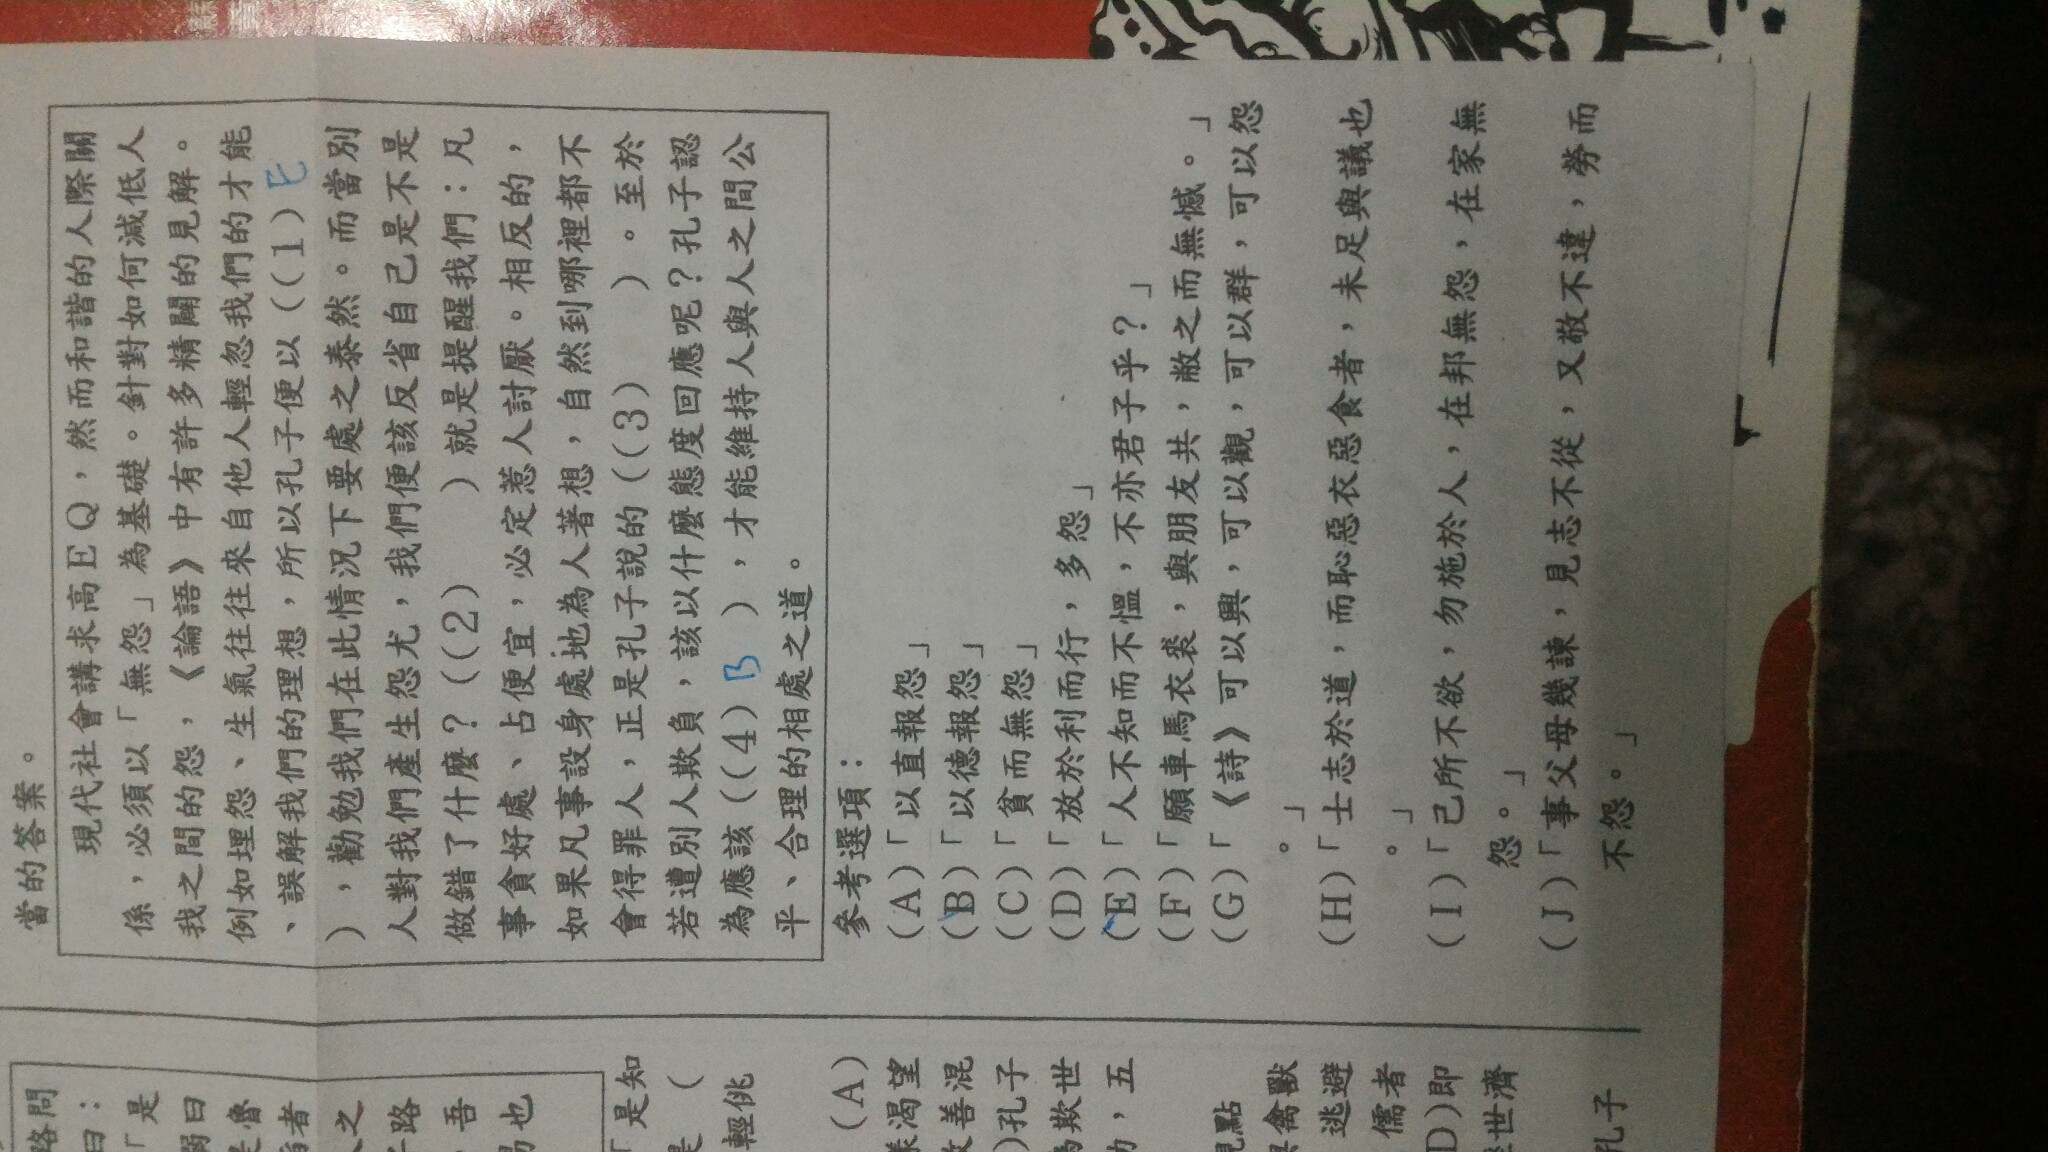 當的答案。
現代社會講求高EQ,然而和諧的人際關
係,必須以「無怨」為基礎。針對如何減低人
我之間的怨,《論語》中有許多精闢的見解。
例如埋怨、生氣往往來自他人輕忽我們的才能
、誤解我們的理想,所以孔子便以((1) E
),勸勉我們在此情況下要處之泰然。而當別
人對我們產生怨尤,我們便該反省自己是不是
做錯了什麼?((2) )就是提醒我們:凡
事貪好處、占便宜,必定惹人討厭。相反的,
如果凡事設身處地為人著想,自然到哪裡都不
會得罪人,正是孔子說的((3) )。至於
若遭別人欺負,該以什麼態度回應呢?孔子認
為應該((4) B ),才能維持人與人之間公
平、合理的相處之道。
參考選項:
(A)「以直報怨」
(B)「以德報怨」
(C)「貧而無怨」
(D)「放於利而行,多怨」
(E)「人不知而不慍,不亦君子乎?」
(F)「願車馬衣裘,與朋友共,敝之而無憾。」
(G)「《詩》可以興,可以觀,可以群,可以怨
。」
(H)「士志於道,而恥惡衣惡食者,未足與議也
。」
(I)「己所不欲,勿施於人,在邦無怨,在家無
怨。」
(J)「事父母幾諫,見志不從,又敬不違,勞而
不怨。」
路問
曰:
「是
者
之
路
吾
也
「是知
是(
輕佻
(A)
渴望
善混
)孔子
欺世
,五
觀點
與禽獸
逃避
儒者
D)即
世濟
孔子